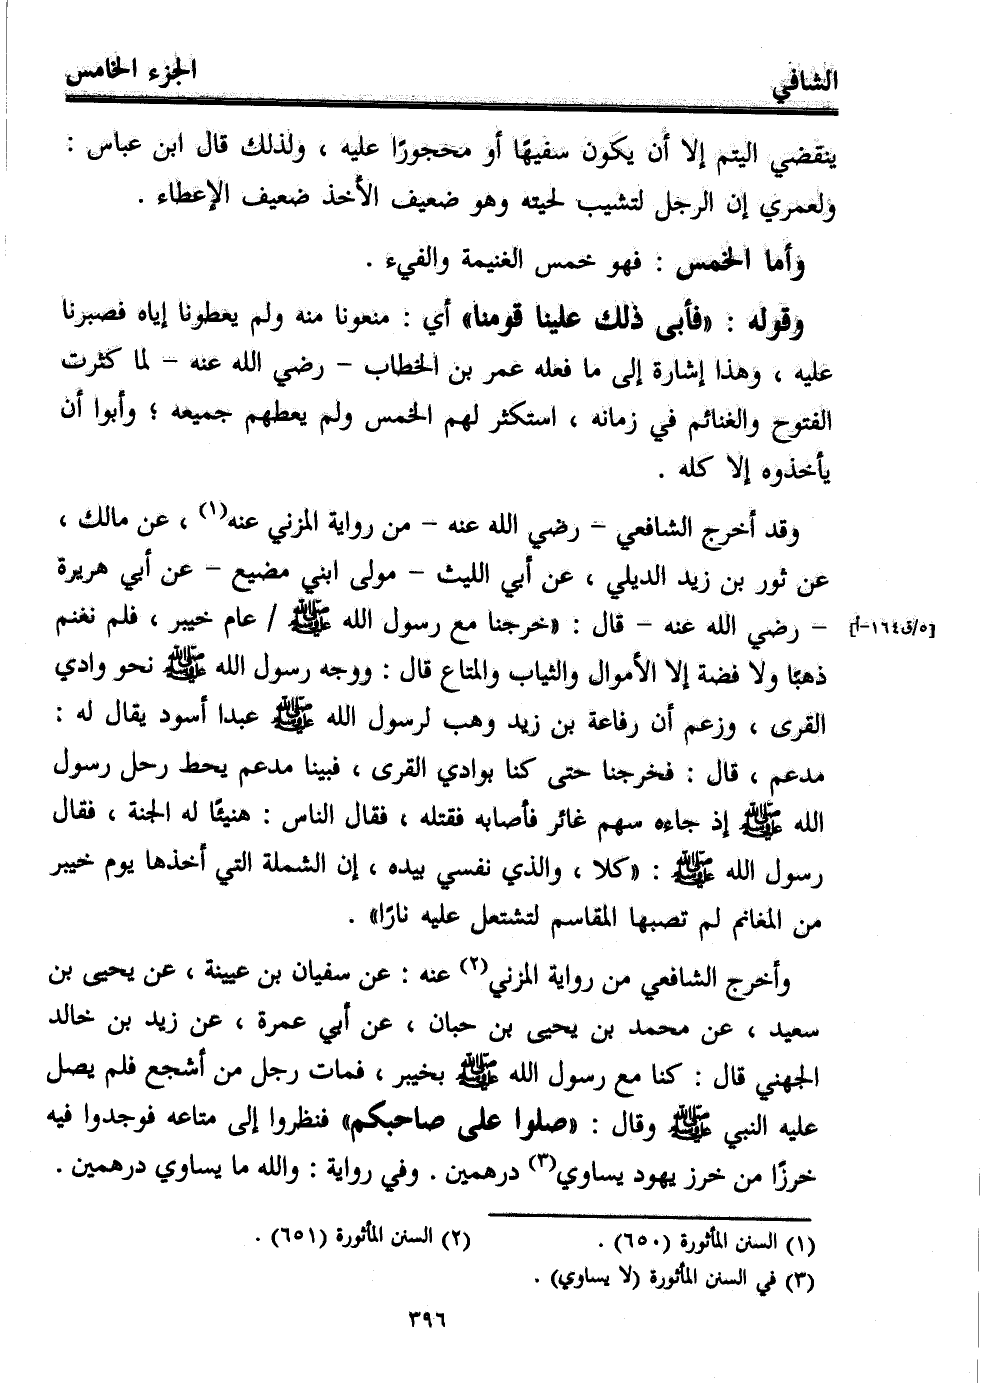 الشافي
الجزء الخامس
ينقضي اليتم إلا أن يكون سفيهًا أو محجورًا عليه ، ولذلك قال ابن عباس :
ولعمري إن الرجل لتشيب لحيته وهو ضعيف الأخذ ضعيف الإعطاء .
وأما الخمس : فهو خمس الغنيمة والفيء .
وقوله : «فأبى ذلك علينا قومنا» أي : منعونا منه ولم يعطونا إياه فصبرنا
عليه ، وهذا إشارة إلى ما فعله عمر بن الخطاب – رضي الله عنه – لما كثرت
الفتوح والغنائم في زمانه ، استكثر لهم الخمس ولم يعطهم جميعه ؛ وأبوا أن
يأخذوه إلا كله .
وقد أخرج الشافعي – رضي الله عنه – من رواية المزني عنه(١) ، عن مالك ،
عن ثور بن زيد الديلي ، عن أبي الليث – مولى ابني مضيع – عن أبي هريرة
– رضي الله عنه – قال : «خرجنا مع رسول الله ﷺ / عام خيبر ، فلم نغنم
[٥/ق١٦٤-أ]
ذهبًا ولا فضة إلا الأموال والثياب والمتاع قال : ووجه رسول الله ﷺ نحو وادي
القرى ، وزعم أن رفاعة بن زيد وهب لرسول الله ﷺ عبدا أسود يقال له :
مدعم ، قال : فخرجنا حتى كنا بوادي القرى ، فبينا مدعم يحط رحل رسول
الله ﷺ إذ جاءه سهم غائر فأصابه فقتله ، فقال الناس : هنيئًا له الجنة ، فقال
رسول الله ﷺ : «كلا ، والذي نفسي بيده ، إن الشملة التي أخذها يوم خيبر
من المغانم لم تصبها المقاسم لتشتعل عليه نارًا» .
وأخرج الشافعي من رواية المزني(٢) عنه : عن سفيان بن عيينة ، عن يحيى بن
سعيد ، عن محمد بن يحيى بن حبان ، عن أبي عمرة ، عن زيد بن خالد
الجهني قال : كنا مع رسول الله ﷺ بخيبر ، فمات رجل من أشجع فلم يصل
عليه النبي ﷺ وقال : «صلوا على صاحبكم» فنظروا إلى متاعه فوجدوا فيه
خرزًا من خرز يهود يساوي(٣) درهمين . وفي رواية : والله ما يساوي درهمين .
(١) السنن المأثورة (٦٥٠) .
(٢) السنن المأثورة (٦٥١) .
(٣) في السنن المأثورة (لا يساوي) .
٣٩٦